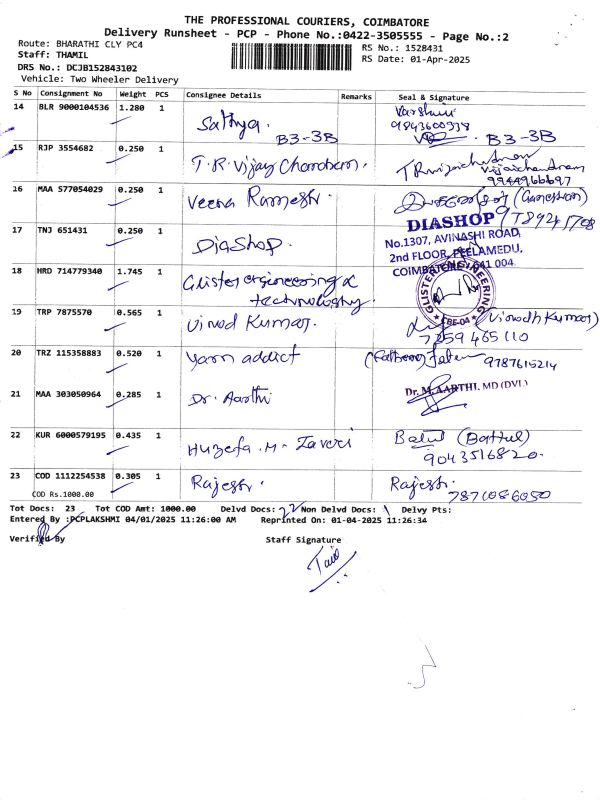 THE PROFESSIONAL COURIERS, COIMBATORE
Delivery Runsheet - PCP - Phone No.:0422-3505555 - Page No.:2
Route: BHARATHI CLY PC4
RS No.: 1528431
Staff: THAMIL
RS Date: 01-Apr-2025
DRS No.: DCJB152843102
Vehicle: Two Wheeler Delivery
S No Consignment No Weight PCS Consignee Details Remarks Seal & Signature
14 BLR 9000104536 1.280 1 Sathya. B3-3B
Varshini
9843600938
B3-3B
15 RJP 3554682 0.250 1 T.R. Vijay Chandran.
Vijaichandran
9944966697
16 MAA 577054029 0.250 1 Veena Ramesh. (Ganeshan)
17 TNJ 651431 0.250 1 DiaShop.
DIASHOP
No.1307, AVINASHI ROAD,
2nd FLOOR, PEELAMEDU,
COIMBATORE - 641 004
18 HRD 714779340 1.745 1 Glister engineering &
technology.
GLISTER ENGINEERING
CBE-04
19 TRP 7875570 0.565 1 Vinod Kumar. (Vinodh Kumar)
7259 465 110
20 TRZ 115358883 0.520 1 Yarn addict
9787615214
21 MAA 303050964 0.285 1 Dr. Aarthi
Dr. M. AARTHI, MD (DVL)
22 KUR 6000579195 0.435 1 Huzefa . M - Zaveri Batul (Battul)
9043516820.
23 COD 1112254538 0.305 1 Rajesh. Rajesh.
COD Rs.1000.00
7871086050
Tot Docs: 23 Tot COD Amt: 1000.00 Delvd Docs: 22 Non Delvd Docs: 1 Delvy Pts:
Entered By :PCPLAKSHMI 04/01/2025 11:26:00 AM Reprinted On: 01-04-2025 11:26:34
Verified By Staff Signature